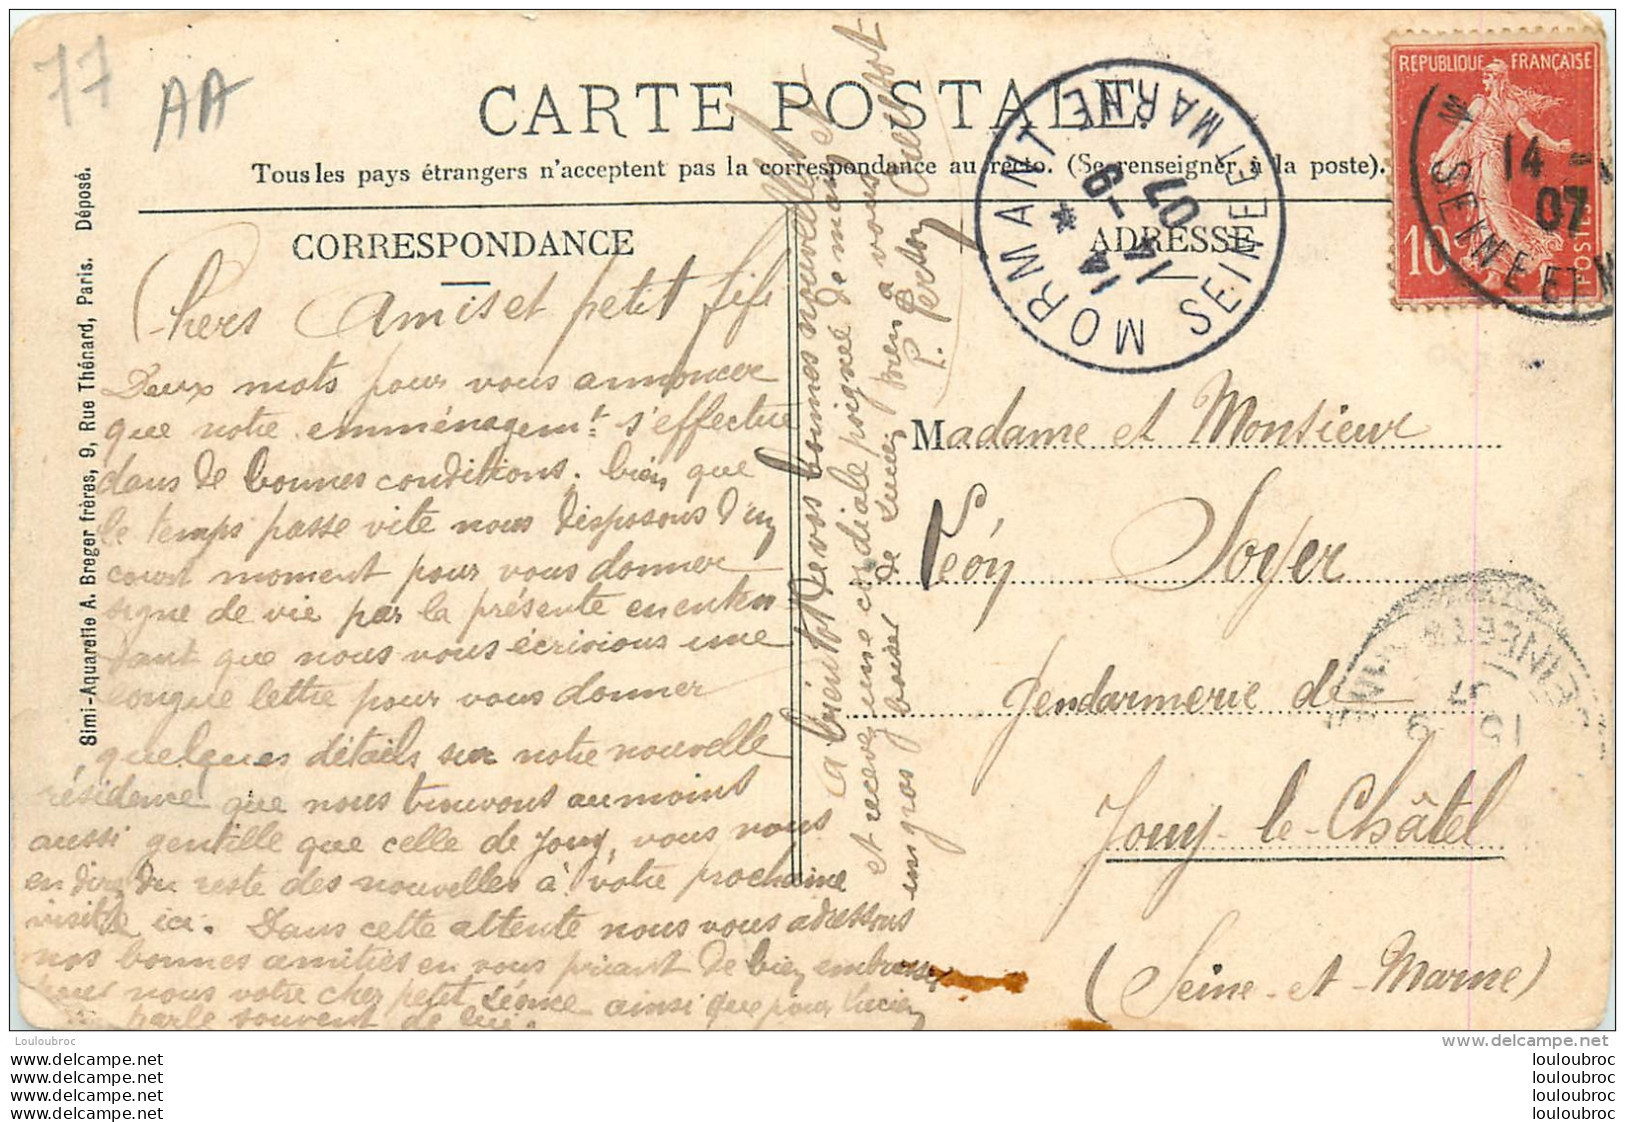 77
AA
CARTE POSTALE
Tous les pays étrangers n'acceptent pas la correspondance au recto. (Se renseigner à la poste).
CORRESPONDANCE
ADRESSE
Simi-Aquarelle A. Breger frères, 9, Rue Thénard, Paris. Déposé.
Chers Amis et petit fifi
Deux mots pour vous annoncer
que notre emménagemt s'effectue
dans de bonnes conditions. bien que
le temps passe vite nous disposons d'un
court moment pour vous donner
signe de vie par la présente en atten
dant que nous vous écrivions une
longue lettre pour vous donner
quelques détails sur notre nouvelle
résidence que nous trouvons au moins
aussi gentille que celle de Jouy, vous
en du reste des nouvelles à votre prochaine
visite ici. Dans cette attente nous vous adressons
nos bonnes amitiés en vous priant de bien embrasser
pour nous votre cher petit ainsi que pour Lucien
parle souvent de lui.
A bientôt de vos bonnes nouvelles
et recevez une cordiale poignée de mains et
un gros baiser de Lucien bien à vous
MORMANT SEINE ET MARNE
14 -9
07
REPUBLIQUE FRANÇAISE
10c
POSTES
14 -
07
SEINE ET M
Madame et Monsieur
Léon Soyer
Gendarmerie de
Jouy-le-Châtel
(Seine-et-Marne)
SEINE ET MARNE
15 9
07
Louloubroc
www.delcampe.net
www.delcampe.net
www.delcampe.net
www.delcampe.net
www.delcampe.net
louloubroc
louloubroc
louloubroc
louloubroc